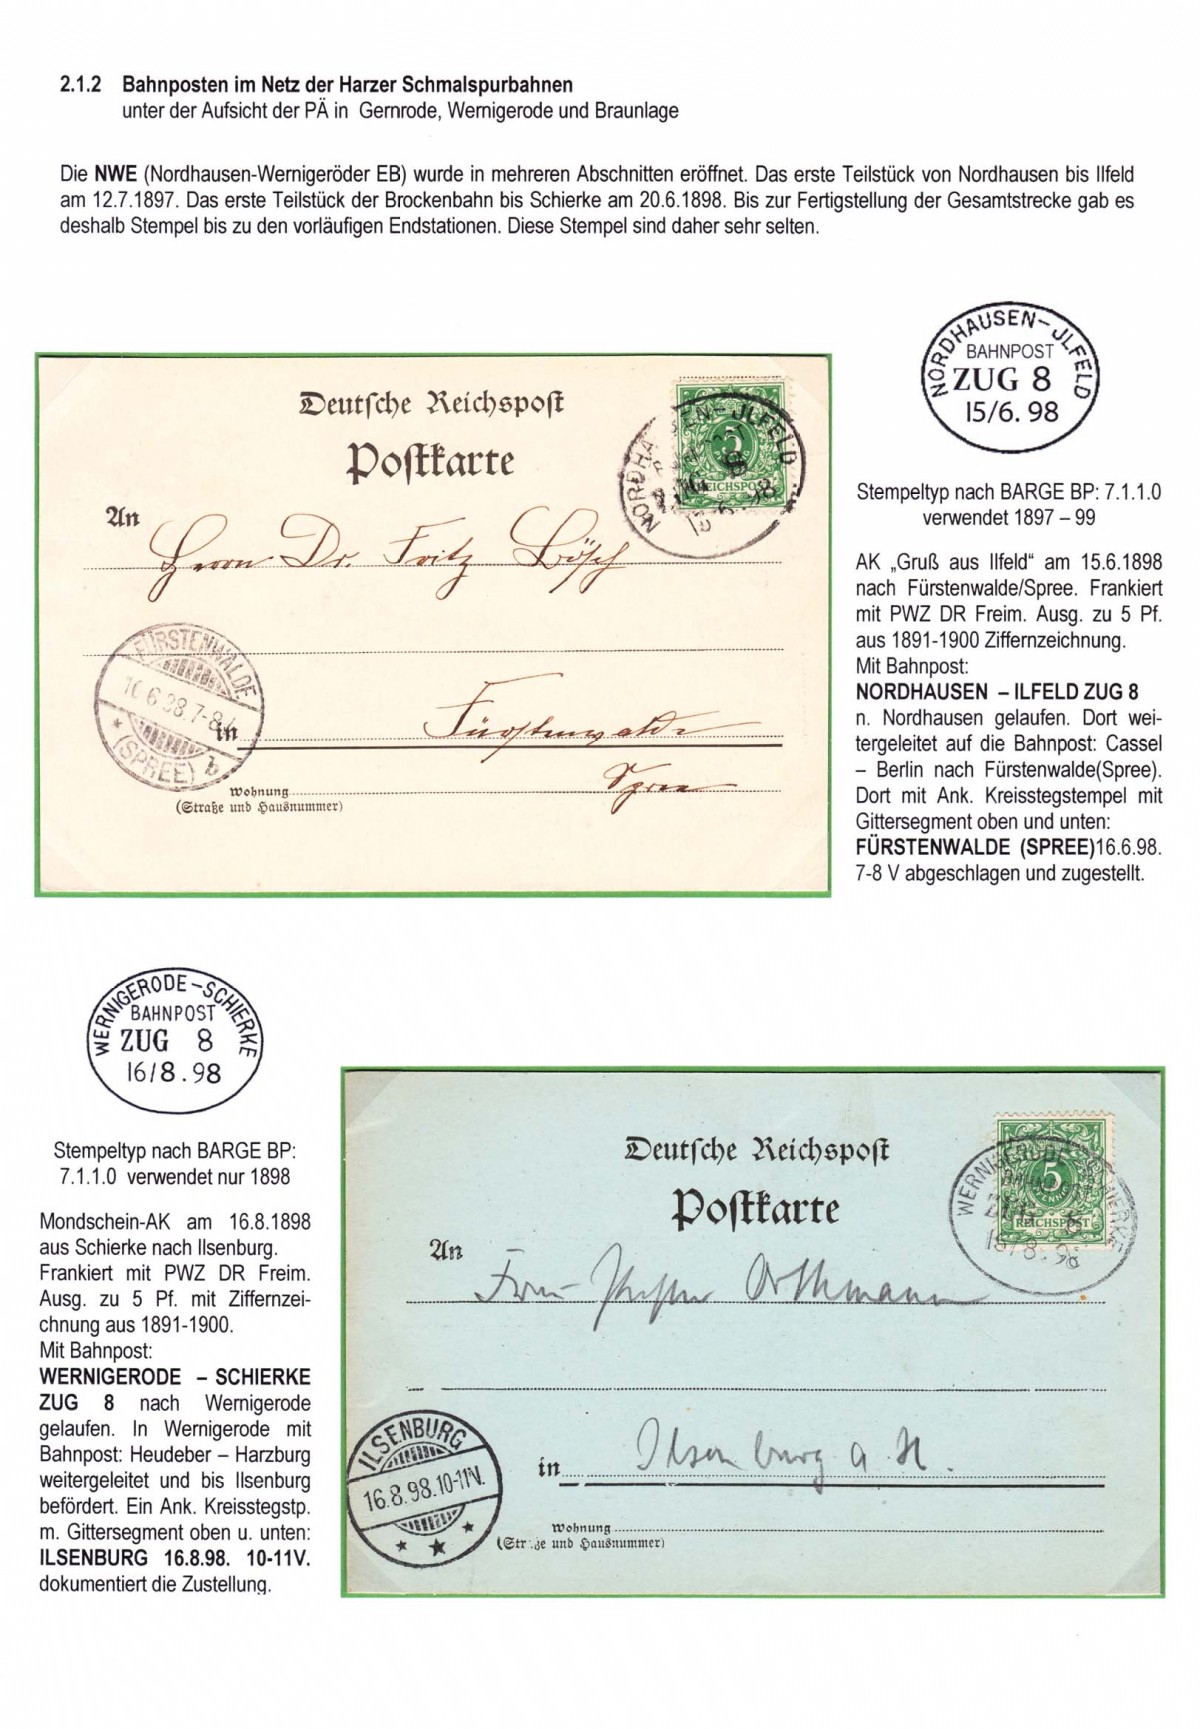 2.1.2 Bahnposten im Netz der Harzer Schmalspurbahnen
unter der Aufsicht der PÄ in Gernrode, Wernigerode und Braunlage
Die NWE (Nordhausen-Wernigeröder EB) wurde in mehreren Abschnitten eröffnet. Das erste Teilstück von Nordhausen bis Ilfeld
am 12.7.1897. Das erste Teilstück der Brockenbahn bis Schierke am 20.6.1898. Bis zur Fertigstellung der Gesamtstrecke gab es
deshalb Stempel bis zu den vorläufigen Endstationen. Diese Stempel sind daher sehr selten.
NORDHAUSEN-JLFELD
BAHNPOST
ZUG 8
15/6. 98
Stempeltyp nach BARGE BP: 7.1.1.0
verwendet 1897 – 99
AK „Gruß aus Ilfeld“ am 15.6.1898
nach Fürstenwalde/Spree. Frankiert
mit PWZ DR Freim. Ausg. zu 5 Pf.
aus 1891-1900 Ziffernzeichnung.
Mit Bahnpost:
NORDHAUSEN – ILFELD ZUG 8
n. Nordhausen gelaufen. Dort wei-
tergeleitet auf die Bahnpost: Cassel
– Berlin nach Fürstenwalde(Spree).
Dort mit Ank. Kreisstegstempel mit
Gittersegment oben und unten:
FÜRSTENWALDE (SPREE)16.6.98.
7-8 V abgeschlagen und zugestellt.
Deutsche Reichspost
Postkarte
NORDHAUSEN-JLFELD
5
REICHSPOST
An
Herrn Dr. Fritz Bösch
FÜRSTENWALDE
16.6.98.7-8V.
(SPREE) b
in Fürstenwalde
Spree
Wohnung
(Straße und Hausnummer)
WERNIGERODE-SCHIERKE
BAHNPOST
ZUG 8
16/8.98
Stempeltyp nach BARGE BP:
7.1.1.0 verwendet nur 1898
Mondschein-AK am 16.8.1898
aus Schierke nach Ilsenburg.
Frankiert mit PWZ DR Freim.
Ausg. zu 5 Pf. mit Ziffernzei-
chnung aus 1891-1900.
Mit Bahnpost:
WERNIGERODE – SCHIERKE
ZUG 8 nach Wernigerode
gelaufen. In Wernigerode mit
Bahnpost: Heudeber – Harzburg
weitergeleitet und bis Ilsenburg
befördert. Ein Ank. Kreisstegstp.
m. Gittersegment oben u. unten:
ILSENBURG 16.8.98. 10-11V.
dokumentiert die Zustellung.
Deutsche Reichspost
Postkarte
WERNIGERODE-SCHIERKE
BAHNPOST
ZUG 8
5
REICHSPOST
An
Frau Orthmann
in Ilsenburg a. H.
ILSENBURG
16.8.98.10-11V.
Wohnung
(Straße und Hausnummer)